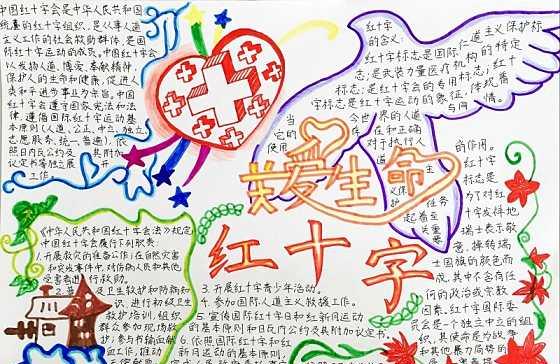 中国红十字会是中华人民共和国
统一的红十字组织,是从事人道
主义工作的社会救助群体,是国
际红十字运动的成员。中国红十字会
以发扬人道、博爱、奉献精神,
保护人的生命和健康,促进人
类和平进步事业为宗旨。中国
红十字会遵守国家宪法和法
律,遵循国际红十字运动基
本原则(人道、公正、中立、独立、
志愿服务、统一、普遍),依
照日内瓦公约及其附加
议定书等独立展开
工作。
红十字
的含义:
红十字标志是国际人道主义保护标
志;是武装力量医疗机构的特定
标志;是红十字会的专用标志;红十
字标志是红十字运动的象征,体现着
当今世界的人道与同情。
它的在和正确
使用对于执行人
道主义
保护
任务
起着至
关重要
的作用。
红十字
标志是
为了对红
十字发件地
瑞士表示敬
意,掉转瑞
士国旗的颜色而
成,其中不含有任
何的政治或宗教
因素。红十字国际委
员会是一个独立中立的组
织,其使命是为战争
关爱生命
红十字
《中华人民共和国红十字会法》规定
中国红十字会履行下列职责:
1.开展救灾的准备工作;在自然灾害
和突发事件中,对伤病人员和其他
受害者进行救助。
识,进行初级卫生
救护培训,组织
群众参加现场救
护;参与输血献
血工作,推动
3.开展红十字青少年活动。
4.参加国际人道主义救援工作。
5.宣传国际红十字日和红新月运动
的基本原则和日内瓦公约及其附加议定书。
6.依照国际红十字和红
新月运动的基本原则,